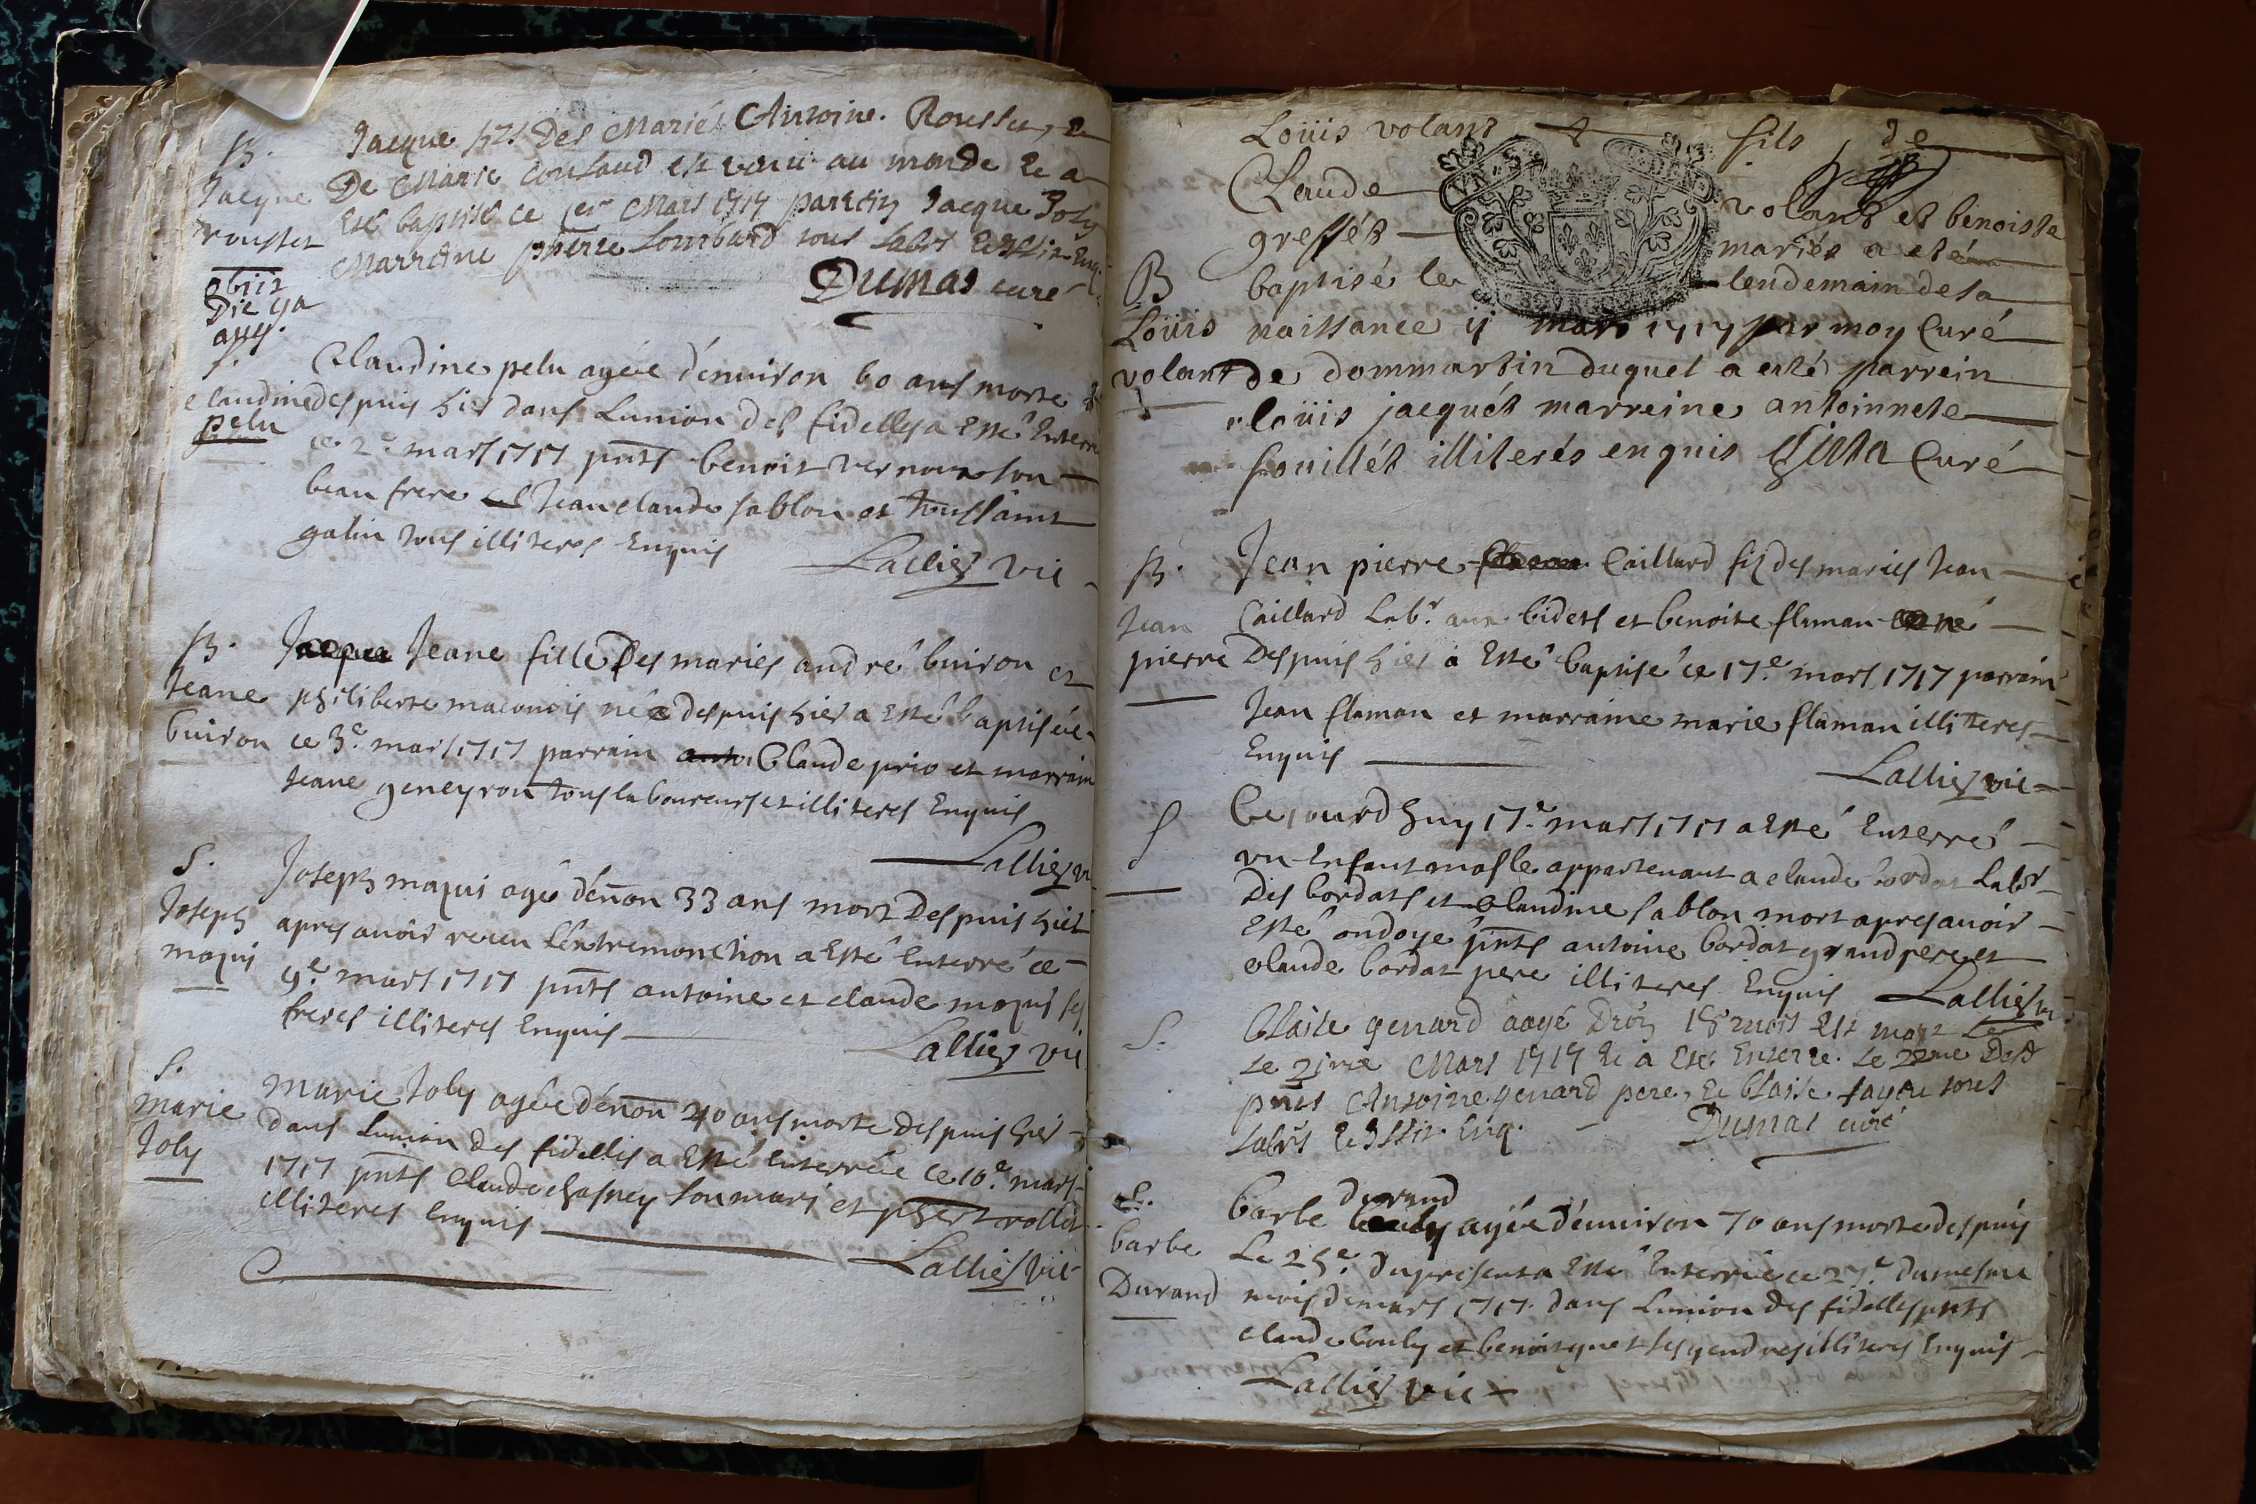 B.
Jacque
rousset
obiit
Die 9a
aug.
Jacque fils Des Mariés Antoine Rousset, &
De Marie Coulaud est venu au monde & a
Esté baptisé ce 1er Mars 1717 parrein Jacque Joly
Marreine pierre Lombard tous Labrs & illit. Enq.
Dumas curé
S.
claudine
pelu
Claudine pelu agée d'enuiron 60 ans morte
despuis hier dans Lunion des fidelles a Esté Enterré
ce 2e mars 1717 pnts benoit vernoux son
beau frere et Jean claude sablon et toussaint
galin tous illiteres Enquis
Lallier vic
B.
Jeane
buiron
Jacque Jeane fille Des mariés andré buiron et
philiberte maconois née despuis hier a Esté baptisée
ce 3e mars 1717 parrain anto. Claude prio et marrain
Jeane geneyron tous laboureurs et illiteres Enquis
Lallier vi
S.
Joseph
maqui
Joseph maqui agé d'enon 33 ans mort Despuis hier
apres auoir receu L'extremonction a Esté Enterré ce
9e mars 1717 pnts antoine et claude maqui ses
freres illiteres Enquis
Lallier vic
S.
Marie
Joly
Marie Joly agée d'enon 40 ans morte Despuis hier
dans Lunion des fidellis a Esté Enterrée ce 10e mars
1717 pnts Claude chasney son mari et phert rollet
illiteres Enquis
Lallier vic
Loüis volant fils de
Claude volant et benoiste
gressét mariés a eté
B
Loüis
volant
baptisé le lendemain de sa
naissance ij mars 1717 par moy Curé
de dommartin duquel a eté parrein
loüis jacquét marreine antoinnete
fouillét illiterés enquis Curé
B.
Jean
pierre
Jean pierre Caillard fil des mariés Jean
Caillard Labr. aux bidets et benoite flaman né
Despuis hier a Esté baptisé ce 17e mars 1717 parrain
Jean flaman et marraine marie flaman illiteres
Enquis
Lallier vic
S
Ce jourd huy 17e mars 1717 a Esté Enterré
vn Enfant masle appartenant a claude bordat Labr
des bordats et claudine sablon mort apres auoir
Esté ondoyé pnts antoine bordat grand pere et
claude bordat pere illiteres Enquis Lallier vi
S.
blaise genard aagé Dron 18 mois Est mort
le 21me Mars 1717 & a Esté Enterré le 22me Dud
pnts Antoine genard pere, & blaise fayen tous
labrs & illit. Enq. Dumas curé
S.
barbe
Durand
durand
barbe bouly agée d'enuiron 70 ans morte despuis
Le 25e du present a Esté Enterrée ce 27e du mesme
mois de mars 1717 dans Lunion des fidelles pnts
claude bouly et benoit ses gendres illiteres Enquis
Lallier vic